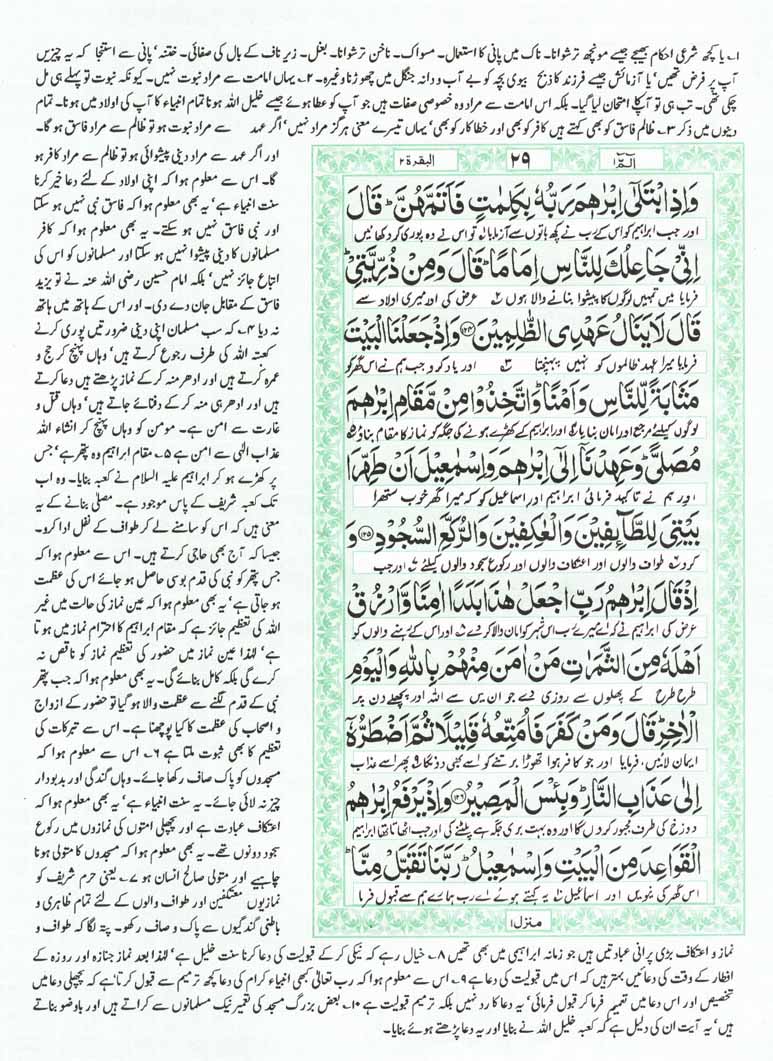 ۱۔ یا کچھ شرعی احکام بھیجے جیسے مونچھ ترشوانا۔ ناک میں پانی کا استعمال۔ مسواک۔ ناخن ترشوانا۔ بغل۔ زیر ناف کے بال کی صفائی۔ ختنہ‘ پانی سے استنجا کہ یہ چیزیں
آپ پر فرض تھیں‘ یا آزمائش جیسے فرزند کا ذبح بیوی بچہ کو بے آب و دانہ جنگل میں چھوڑنا وغیرہ۔ ۲۔ یہاں امامت سے مراد نبوت نہیں۔ کیونکہ نبوت تو پہلے ہی مل
چکی تھی۔ تب ہی تو آپ کا امتحان لیا گیا۔ بلکہ اس امامت سے مراد وہ خصوصی صفات ہیں جو آپ کو عطا ہوئے جیسے خلیل اللہ ہونا تمام انبیاء کا آپ کی اولاد میں ہونا۔ تمام
دینوں میں ذکر ۳۔ ظالم فاسق کو بھی کہتے ہیں کافر کو بھی اور خطاکار کو بھی‘ یہاں تیسرے معنی ہرگز مراد نہیں‘ اگر عہد سے مراد نبوت ہو تو ظالم سے مراد فاسق ہو گا۔
الٓمّٓ ١
٢٩
البقرة ٢
وَاِذِ ابْتَلٰٓى اِبْرٰهٖمَ رَبُّهٗ بِكَلِمٰتٍ فَاَتَمَّهُنَّ ؕ قَالَ
اور جب ابراہیم کو اس کے رب نے کچھ باتوں سے آزمایا لہ تو اس نے وہ پوری کر دکھائیں
اِنِّیْ جَاعِلُكَ لِلنَّاسِ اِمَامًا ؕ قَالَ وَمِنْ ذُرِّیَّتِیْ ؕ
فرمایا میں تمہیں لوگوں کا پیشوا بنانے والا ہوں ۲ عرض کی اور میری اولاد سے
قَالَ لَا یَنَالُ عَهْدِی الظّٰلِمِیْنَ ﴿۱۲۴﴾ وَاِذْ جَعَلْنَا الْبَیْتَ
فرمایا میرا عہد ظالموں کو نہیں پہنچتا ۳ اور یاد کرو جب ہم نے اس گھر کو
مَثَابَةً لِّلنَّاسِ وَاَمْنًا ؕ وَاتَّخِذُوْا مِنْ مَّقَامِ اِبْرٰهٖمَ
لوگوں کیلئے مرجع اور امان بنایا ۴ اور ابراہیم کے کھڑے ہونے کی جگہ کو نماز کا مقام بناؤ ۵
مُصَلًّى ؕ وَعَهِدْنَاۤ اِلٰۤى اِبْرٰهٖمَ وَاِسْمٰعِیْلَ اَنْ طَهِّرَا
اور ہم نے تاکید فرمائی ابراہیم اور اسماعیل کو کہ میرا گھر خوب ستھرا
بَیْتِیَ لِلطَّآئِفِیْنَ وَالْعٰكِفِیْنَ وَالرُّكَّعِ السُّجُوْدِ ﴿۱۲۵﴾ وَ
کرو ۶ طواف والوں اور اعتکاف والوں اور رکوع سجود والوں کیلئے ۷ اور جب
اِذْ قَالَ اِبْرٰهٖمُ رَبِّ اجْعَلْ هٰذَا بَلَدًا اٰمِنًا وَّارْزُقْ
عرض کی ابراہیم نے کہ اے میرے رب اس شہر کو امان والا کر دے اور اس کے رہنے والوں کو
اَهْلَهٗ مِنَ الثَّمَرٰتِ مَنْ اٰمَنَ مِنْهُمْ بِاللّٰهِ وَالْیَوْمِ
طرح طرح کے پھلوں سے روزی دے جو ان میں سے اللہ اور پچھلے دن پر
الْاٰخِرِ ؕ قَالَ وَمَنْ كَفَرَ فَاُمَتِّعُهٗ قَلِیْلًا ثُمَّ اَضْطَرُّهٗۤ
ایمان لائیں۔ فرمایا اور جو کافر ہوا تھوڑا برتنے کو اسے بھی دوں گا پھر اسے عذاب
اِلٰى عَذَابِ النَّارِ ؕ وَبِئْسَ الْمَصِیْرُ ﴿۱۲۶﴾ وَاِذْ یَرْفَعُ اِبْرٰهٖمُ
دوزخ کی طرف مجبور کر دوں گا اور وہ بہت بری جگہ ہے پلٹنے کی اور جب اٹھاتا تھا ابراہیم
الْقَوَاعِدَ مِنَ الْبَیْتِ وَاِسْمٰعِیْلُ ؕ رَبَّنَا تَقَبَّلْ مِنَّا ؕ
اس گھر کی نیویں اور اسماعیل یہ کہتے ہوئے اے رب ہمارے ہم سے قبول فرما
منزل ١
اور اگر عہد سے مراد دینی پیشوائی ہو تو ظالم سے مراد کافر ہو
گا۔ اس سے معلوم ہوا کہ اپنی اولاد کے لئے دعا خیر کرنا
سنت انبیاء ہے‘ یہ بھی معلوم ہوا کہ فاسق نبی نہیں ہو سکتا
اور نبی فاسق نہیں ہو سکتے۔ یہ بھی معلوم ہوا کہ کافر
مسلمانوں کا دینی پیشوا نہیں ہو سکتا اور مسلمانوں کو اس کی
اتباع جائز نہیں‘ بلکہ امام حسین رضی اللہ عنہ نے تو یزید
فاسق کے مقابل جان دے دی۔ اور اس کے ہاتھ میں ہاتھ
نہ دیا ۴۔ کہ سب مسلمان اپنی دینی ضرورتیں پوری کرنے
کعبۃ اللہ کی طرف رجوع کرتے ہیں‘ وہاں پہنچ کر حج و
عمرہ کرتے ہیں اور ادھر منہ کر کے نماز پڑھتے ہیں دعا کرتے
ہیں اور ادھر ہی منہ کر کے دفنائے جاتے ہیں‘ وہاں قتل و
غارت سے امن ہے۔ مومن کو وہاں پہنچ کر انشاء اللہ
عذاب الٰہی سے امن ہے ۵۔ مقام ابراہیم وہ پتھر ہے‘ جس
پر کھڑے ہو کر ابراہیم علیہ السلام نے کعبہ بنایا۔ وہ اب
تک کعبہ شریف کے پاس موجود ہے۔ مصلیٰ بنانے کے یہ
معنی ہیں کہ اس کو سامنے لے کر طواف کے نفل ادا کرو۔
جیسا کہ آج بھی حاجی کرتے ہیں۔ اس سے معلوم ہوا کہ
جس پتھر کو نبی کی قدم بوسی حاصل ہو جائے اس کی عظمت
ہو جاتی ہے‘ یہ بھی معلوم ہوا کہ عین نماز کی حالت میں غیر
اللہ کی تعظیم جائز ہے کہ مقام ابراہیم کا احترام نماز میں ہوتا
ہے‘ لہٰذا عین نماز میں حضور کی تعظیم نماز کو ناقص نہ
کرے گی بلکہ کامل بنائے گی۔ یہ بھی معلوم ہوا کہ جب پتھر
نبی کے قدم لگنے سے عظمت والا ہو گیا تو حضور کے ازواج
و اصحاب کی عظمت کا کیا پوچھنا ہے۔ اس سے تبرکات کی
تعظیم کا بھی ثبوت ملتا ہے ۶۔ اس سے معلوم ہوا کہ
مسجدوں کو پاک صاف رکھا جائے۔ وہاں گندگی اور بدبودار
چیز نہ لائی جائے۔ یہ سنت انبیاء ہے‘ یہ بھی معلوم ہوا کہ
اعتکاف عبادت ہے اور پچھلی امتوں کی نمازوں میں رکوع
سجود دونوں تھے۔ یہ بھی معلوم ہوا کہ مسجدوں کا متولی ہونا
چاہیے اور متولی صالح انسان ہو ۷۔ یعنی حرم شریف کو
نمازیوں معتکفین اور طواف والوں کے لئے تمام ظاہری و
باطنی گندگیوں سے پاک و صاف رکھو۔ پتہ لگا کہ طواف و
نماز و اعتکاف بڑی پرانی عبادتیں ہیں جو زمانہ ابراہیمی میں بھی تھیں ۸۔ خیال رہے کہ نیکی کر کے قبولیت کی دعا کرنا سنت خلیل ہے‘ لہٰذا بعد نماز جنازہ اور روزہ کے
افطار کے وقت کی دعائیں بہتر ہیں کہ اس میں قبولیت کی دعا ہے ۹۔ اس سے معلوم ہوا کہ رب تعالٰی بھی انبیاء کرام کی دعا کچھ ترمیم سے قبول کرتا ہے کہ پچھلی دعا میں
تخصیص اور اس دعا میں تعمیم فرما کر قبول فرمائی‘ یہ دعا کا رد نہیں بلکہ ترمیم قبولیت ہے ۱۰۔ بعض بزرگ مسجد کی تعمیر نیک مسلمانوں سے کراتے ہیں اور باوضو بناتے
ہیں‘ یہ آیت ان کی دلیل ہے کہ کعبہ خلیل اللہ نے بنایا اور یہ دعا پڑھتے ہوئے بنایا۔